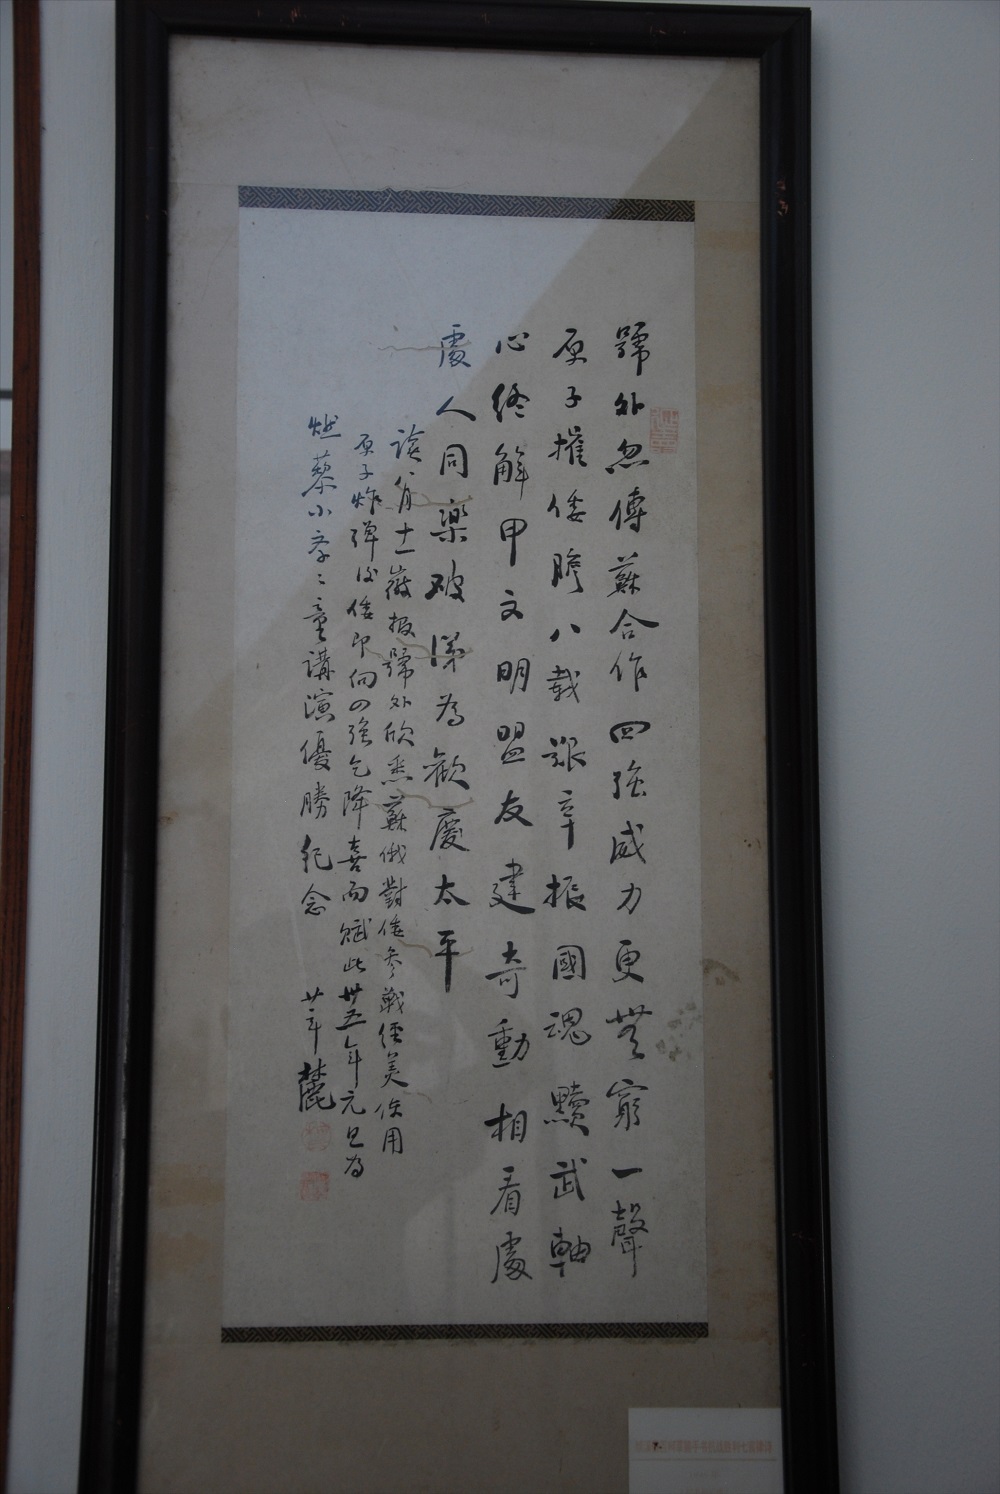 號外忽傳蘇合作四強威力更無窮一聲
原子摧倭膽八載艱辛振國魂黷武軸
心終解甲文明盟友建奇勳相看處
處人同樂破涕為歡慶太平
讀八月十一嶶报號外欣悉蘇俄對倭參戰經美使用
原子炸彈後倭即向四強乞降喜而賦此卅五年元旦为
燃藜小學童講演優勝紀念